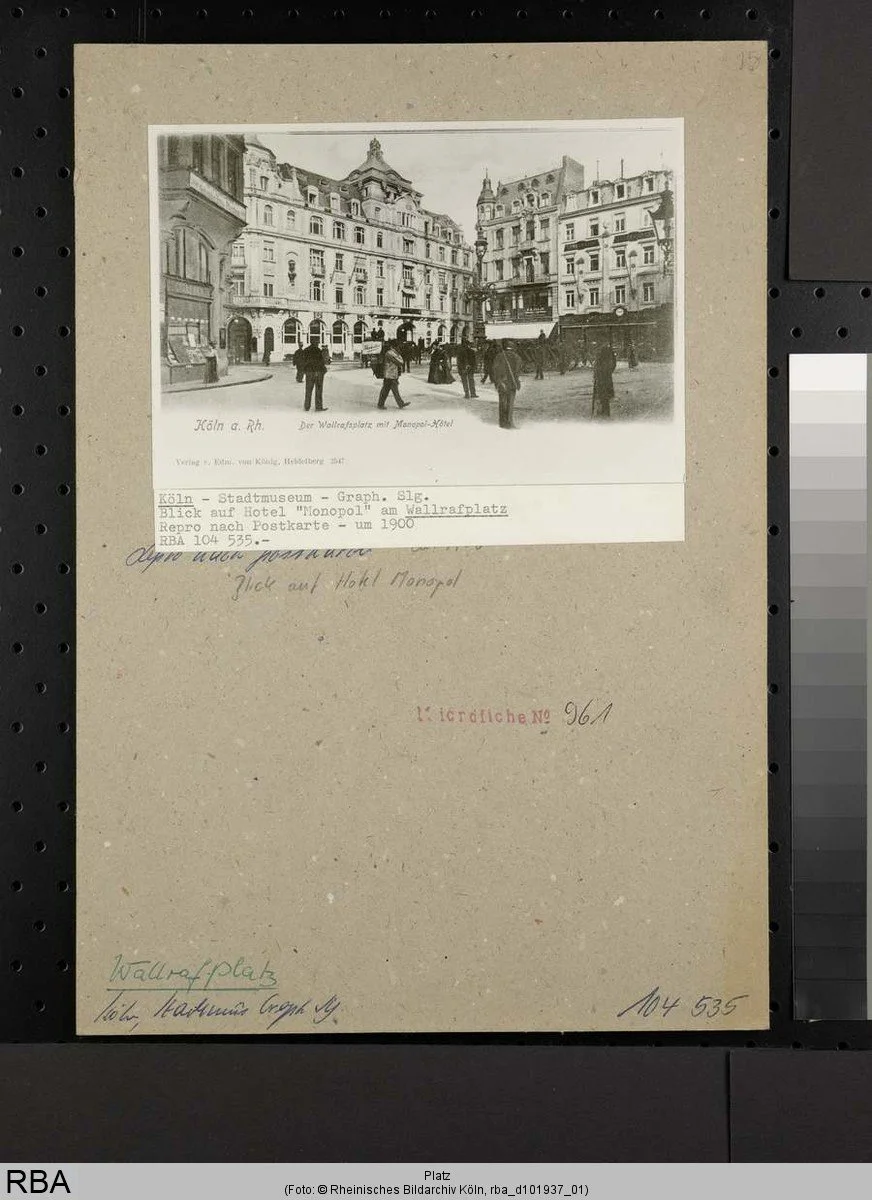 15
Köln a. Rh.
Der Wallrafsplatz mit Monopol-Hôtel
Verlag v. Edm. von König, Heidelberg
Köln - Stadtmuseum - Graph. Slg.
Blick auf Hotel "Monopol" am Wallrafplatz
Repro nach Postkarte - um 1900
RBA 104 535.-
Repro nach Postkarte
Blick auf Hotel Monopol
Microfiche No 961
Wallrafplatz
Köln, Stadtmus Graph Slg.
104 535
RBA
Platz
(Foto: © Rheinisches Bildarchiv Köln, rba_d101937_01)